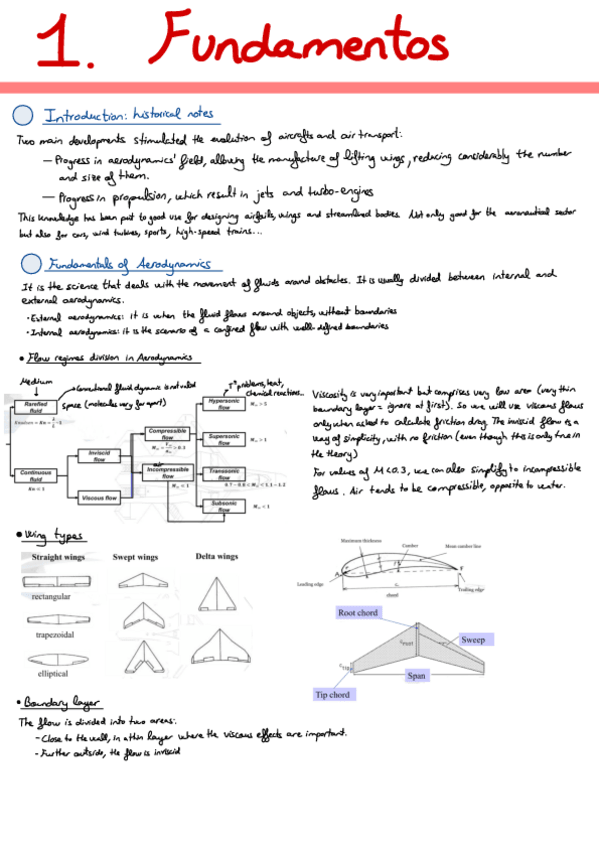 1. Fundamentos
Introduction: historical notes
Two main developments stimulated the evolution of aircrafts and air transport:
— Progress in aerodynamics' field, allowing the manufacture of lifting wings, reducing considerably the number
and size of them.
— Progress in propulsion, which result in jets and turbo-engines
This knowledge has been put to good use for designing airfoils, wings and streamlined bodies. Not only good for the aeronautical sector
but also for cars, wind turbines, sports, high-speed trains...
Fundamentals of Aerodynamics
It is the science that deals with the movement of fluids around obstacles. It is usually divided between internal and
external aerodynamics.
· External aerodynamics: it is when the fluid flows around objects, without boundaries
· Internal aerodynamics: it is the scenario of a confined flow with well-defined boundaries
• Flow regimes division in Aerodynamics
Medium
Conventional fluid dynamic is not valid
Space (molecules very far apart)
Rarefied fluid
Continuous fluid
Inviscid flow
Viscous flow
Compressible flow
air
Incompressible flow
Tª problems, heat,
chemical reactions...
Hypersonic flow
M∞ > 5
Supersonic flow
M∞ > 1
Transonic flow
Subsonic flow
M∞ < 1
Viscosity is very important but comprises very low area (very thin
boundary layer = ignore at first). So we will use viscous flows
only when asked to calculate friction drag. The inviscid flow is a
way of simplicity, with no friction (even though this is only true in
the theory)
For values of M<0.3, we can also simplify to incompressible
flows. Air tends to be compressible, opposite to water.
• Wing types
Straight wings Swept wings Delta wings
rectangular
trapezoidal
elliptical
Maximum thickness
Camber
Mean camber line
Leading edge
Trailing edge
chord
Root chord
Sweep
Span
Tip chord
• Boundary layer
The flow is divided into two areas:
- Close to the wall, in a thin layer where the viscous effects are important.
- Further outside, the flow is inviscid